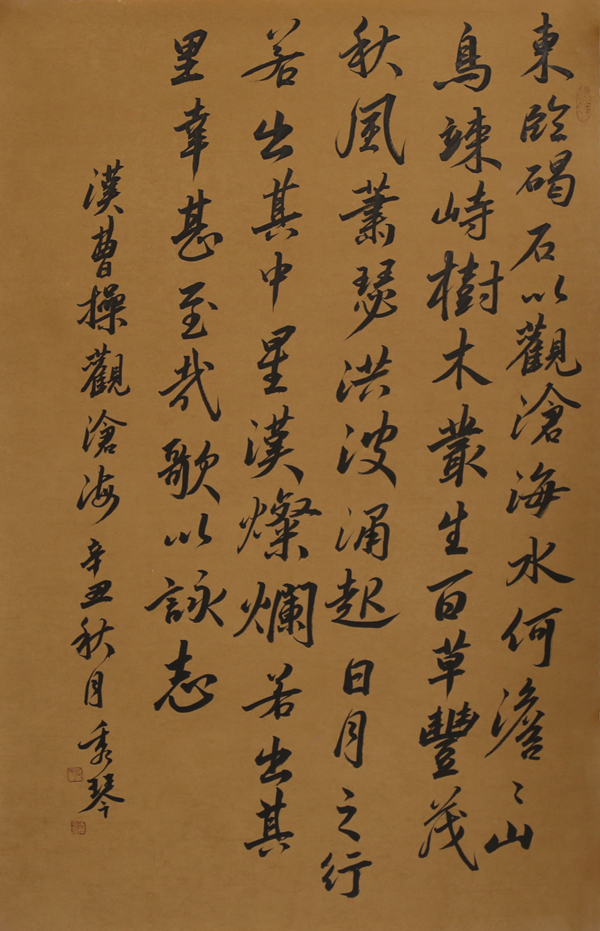 東臨碣石以觀滄海水何澹〻山
島竦峙樹木叢生百草豐茂
秋風蕭瑟洪波涌起日月之行
若出其中星漢燦爛若出其
里幸甚至哉歌以詠志
漢曹操觀滄海辛丑秋月秀琴